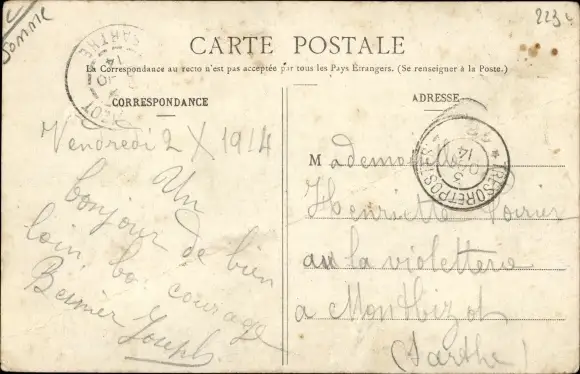 Somme
223
CARTE POSTALE
La Correspondance au recto n'est pas acceptée par tous les Pays Étrangers. (Se renseigner à la Poste.)
SARTHE
14
CORRESPONDANCE
Vendredi 2 X 1914
Un
bonjour de bien
loin, bon courage
Bernier Joseph
ADRESSE
TRESOR ET POSTES
5
14
Mademoiselle
Henriette Poirier
au la violetterie
a Montbizot
(Sarthe)